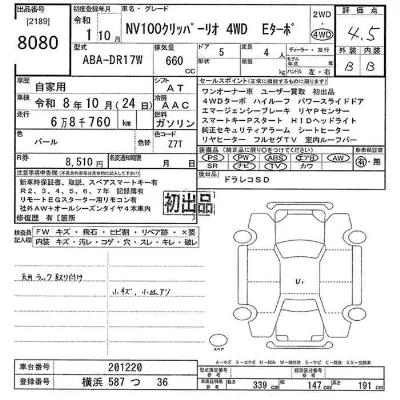 出品番号 [2189] 8080
初度登録年月 令和 1年10月
車名・グレード NV100クリッパーリオ 4WD Eターボ
2WD・4WD
評価点 4.5
型式 ABA-DR17W
排気量 660 CC
ドア 5
定員 4 人
ディーラー・並行
ハンドル 左・右
外装 B
内装 B
車歴 自家用
シフト AT
車検 令和 8年10月(24日)
冷房 AAC
走行 6万8千760 km
燃料 ガソリン
色 パール
色コード Z7T
R 8,510 円
名変通知期限 月 日
セールスポイント
ワンオーナー車 ユーザー買取 初出品
4WDターボ ハイルーフ パワースライドドア
エマージェンシーブレーキ リヤPセンサー
スマートキーPスタート HIDヘッドライト
純正セキュリティアラーム シートヒーター
リヤヒーター フルセグTV 室内ルーフバー
純正装備品
PS PW AB AW エアB SR
カワ TV ナビ
有・無
ドラレコSD
注意事項
新車時保証書、取説、スペアスマートキー有
R2、3、4、5、6、7年 記録簿有
リモートEGスターター用リモコン有
社外AW+オールシーズンタイヤ4本車内
修復歴 有 [箇所
初出品
検査員記入欄
FW キズ・飛石・ヒビ割・リペア跡・×要
内装 キズ・汚レ・コゲ・穴・スレ・キレ・破レ
天井 ラック取り付け
小キズ、小凹アリ
車台番号 201220
登録番号 横浜 587 つ 36
長さ 339 cm
幅 147 cm
高さ 191 cm